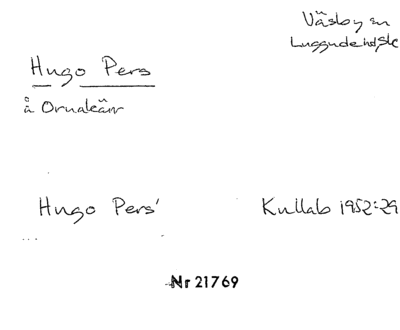 Väsby sn
Luggude hd Sk
Hugo Pers
å Ornakärr
Hugo Pers' Kullab 1952:29
Nr 21769